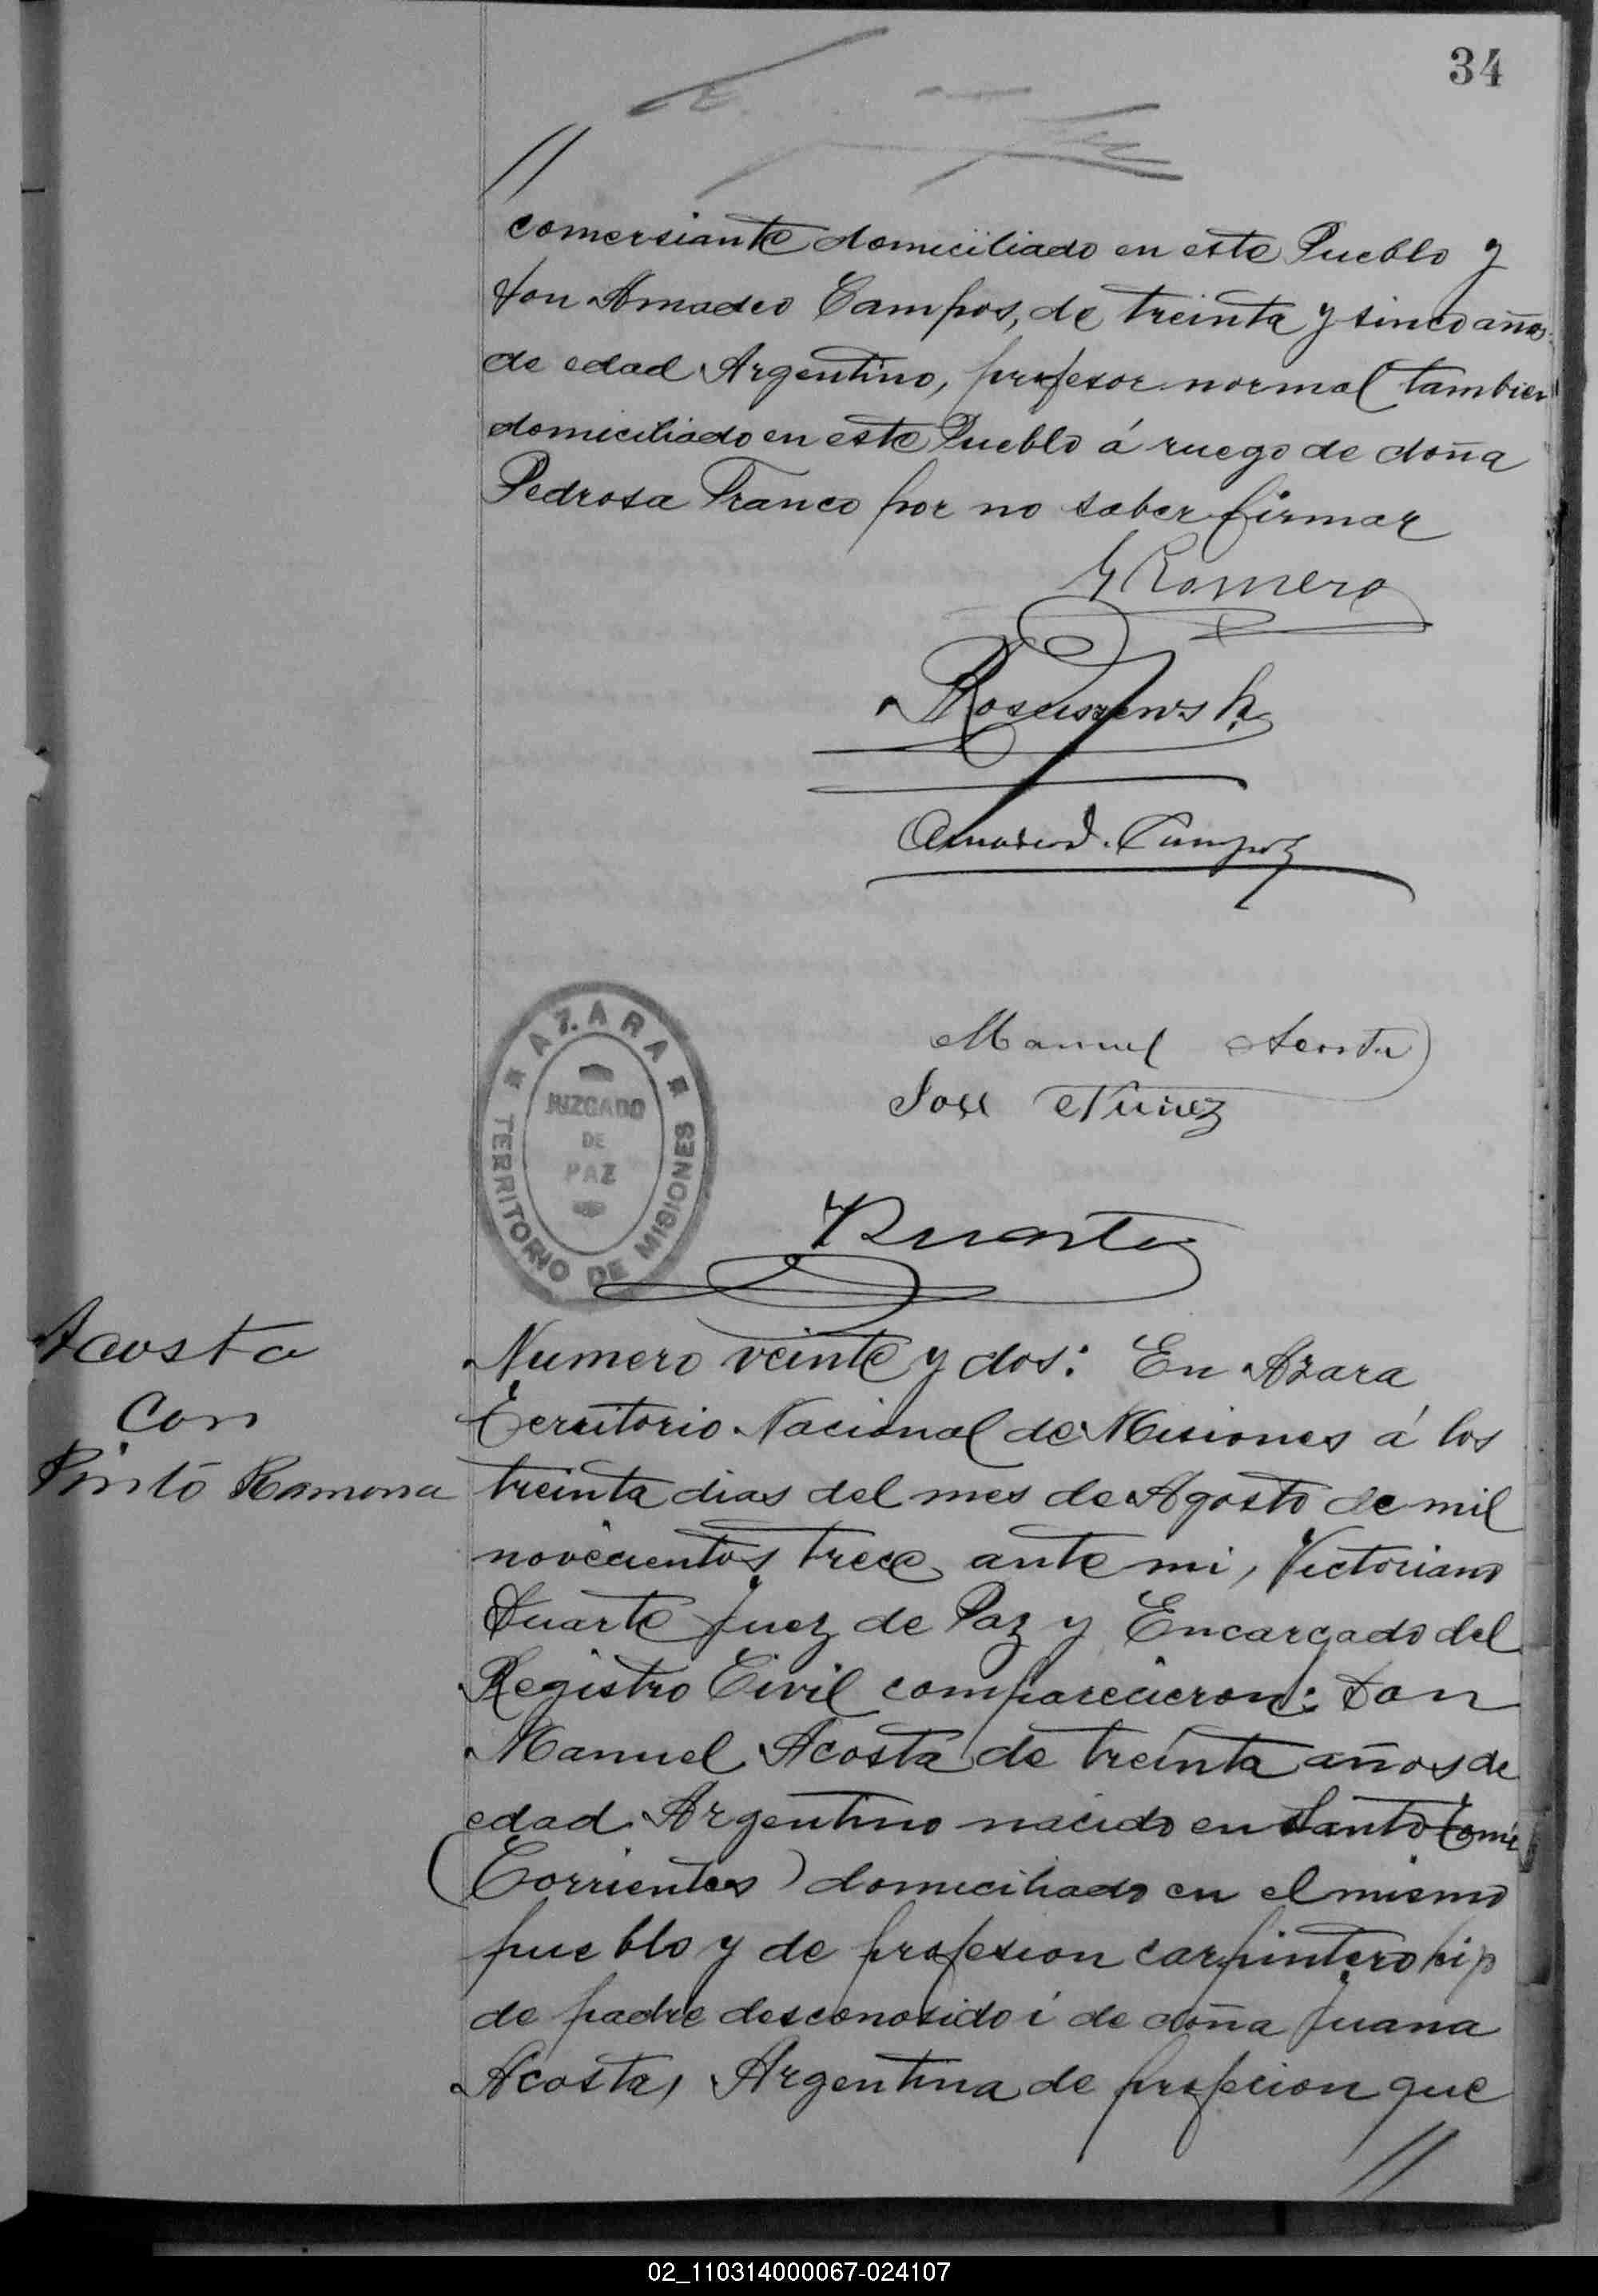 34
//
comersiante domiciliado en este Pueblo y
don Amadeo Campos, de treinta y sinco años
de edad Argentino, profesor normal tambien
domiciliado en este Pueblo á ruego de doña
Pedrosa Franco por no saber firmar
G Romero
Amadeo J. Campos
Manuel Acosta
José Nuñez
AZARA
JUZGADO
DE
PAZ
TERRITORIO DE MISIONES
VDuarte
Acosta
Con
Pinto Ramona
Numero veinte y dos: En Azara
Territorio Nacional de Misiones á los
treinta dias del mes de Agosto de mil
novecientos trece ante mi, Victoriano
Duarte Juez de Paz y Encargado del
Registro Civil comparecieron: Don
Manuel Acosta de treinta años de
edad Argentino nacido en Santo Tomé
(Corrientes) domiciliado en el mismo
pueblo y de profesion carpintero hijo
de padre desconosido i de doña Juana
Acosta, Argentina de profecion que
//
02_110314000067-024107